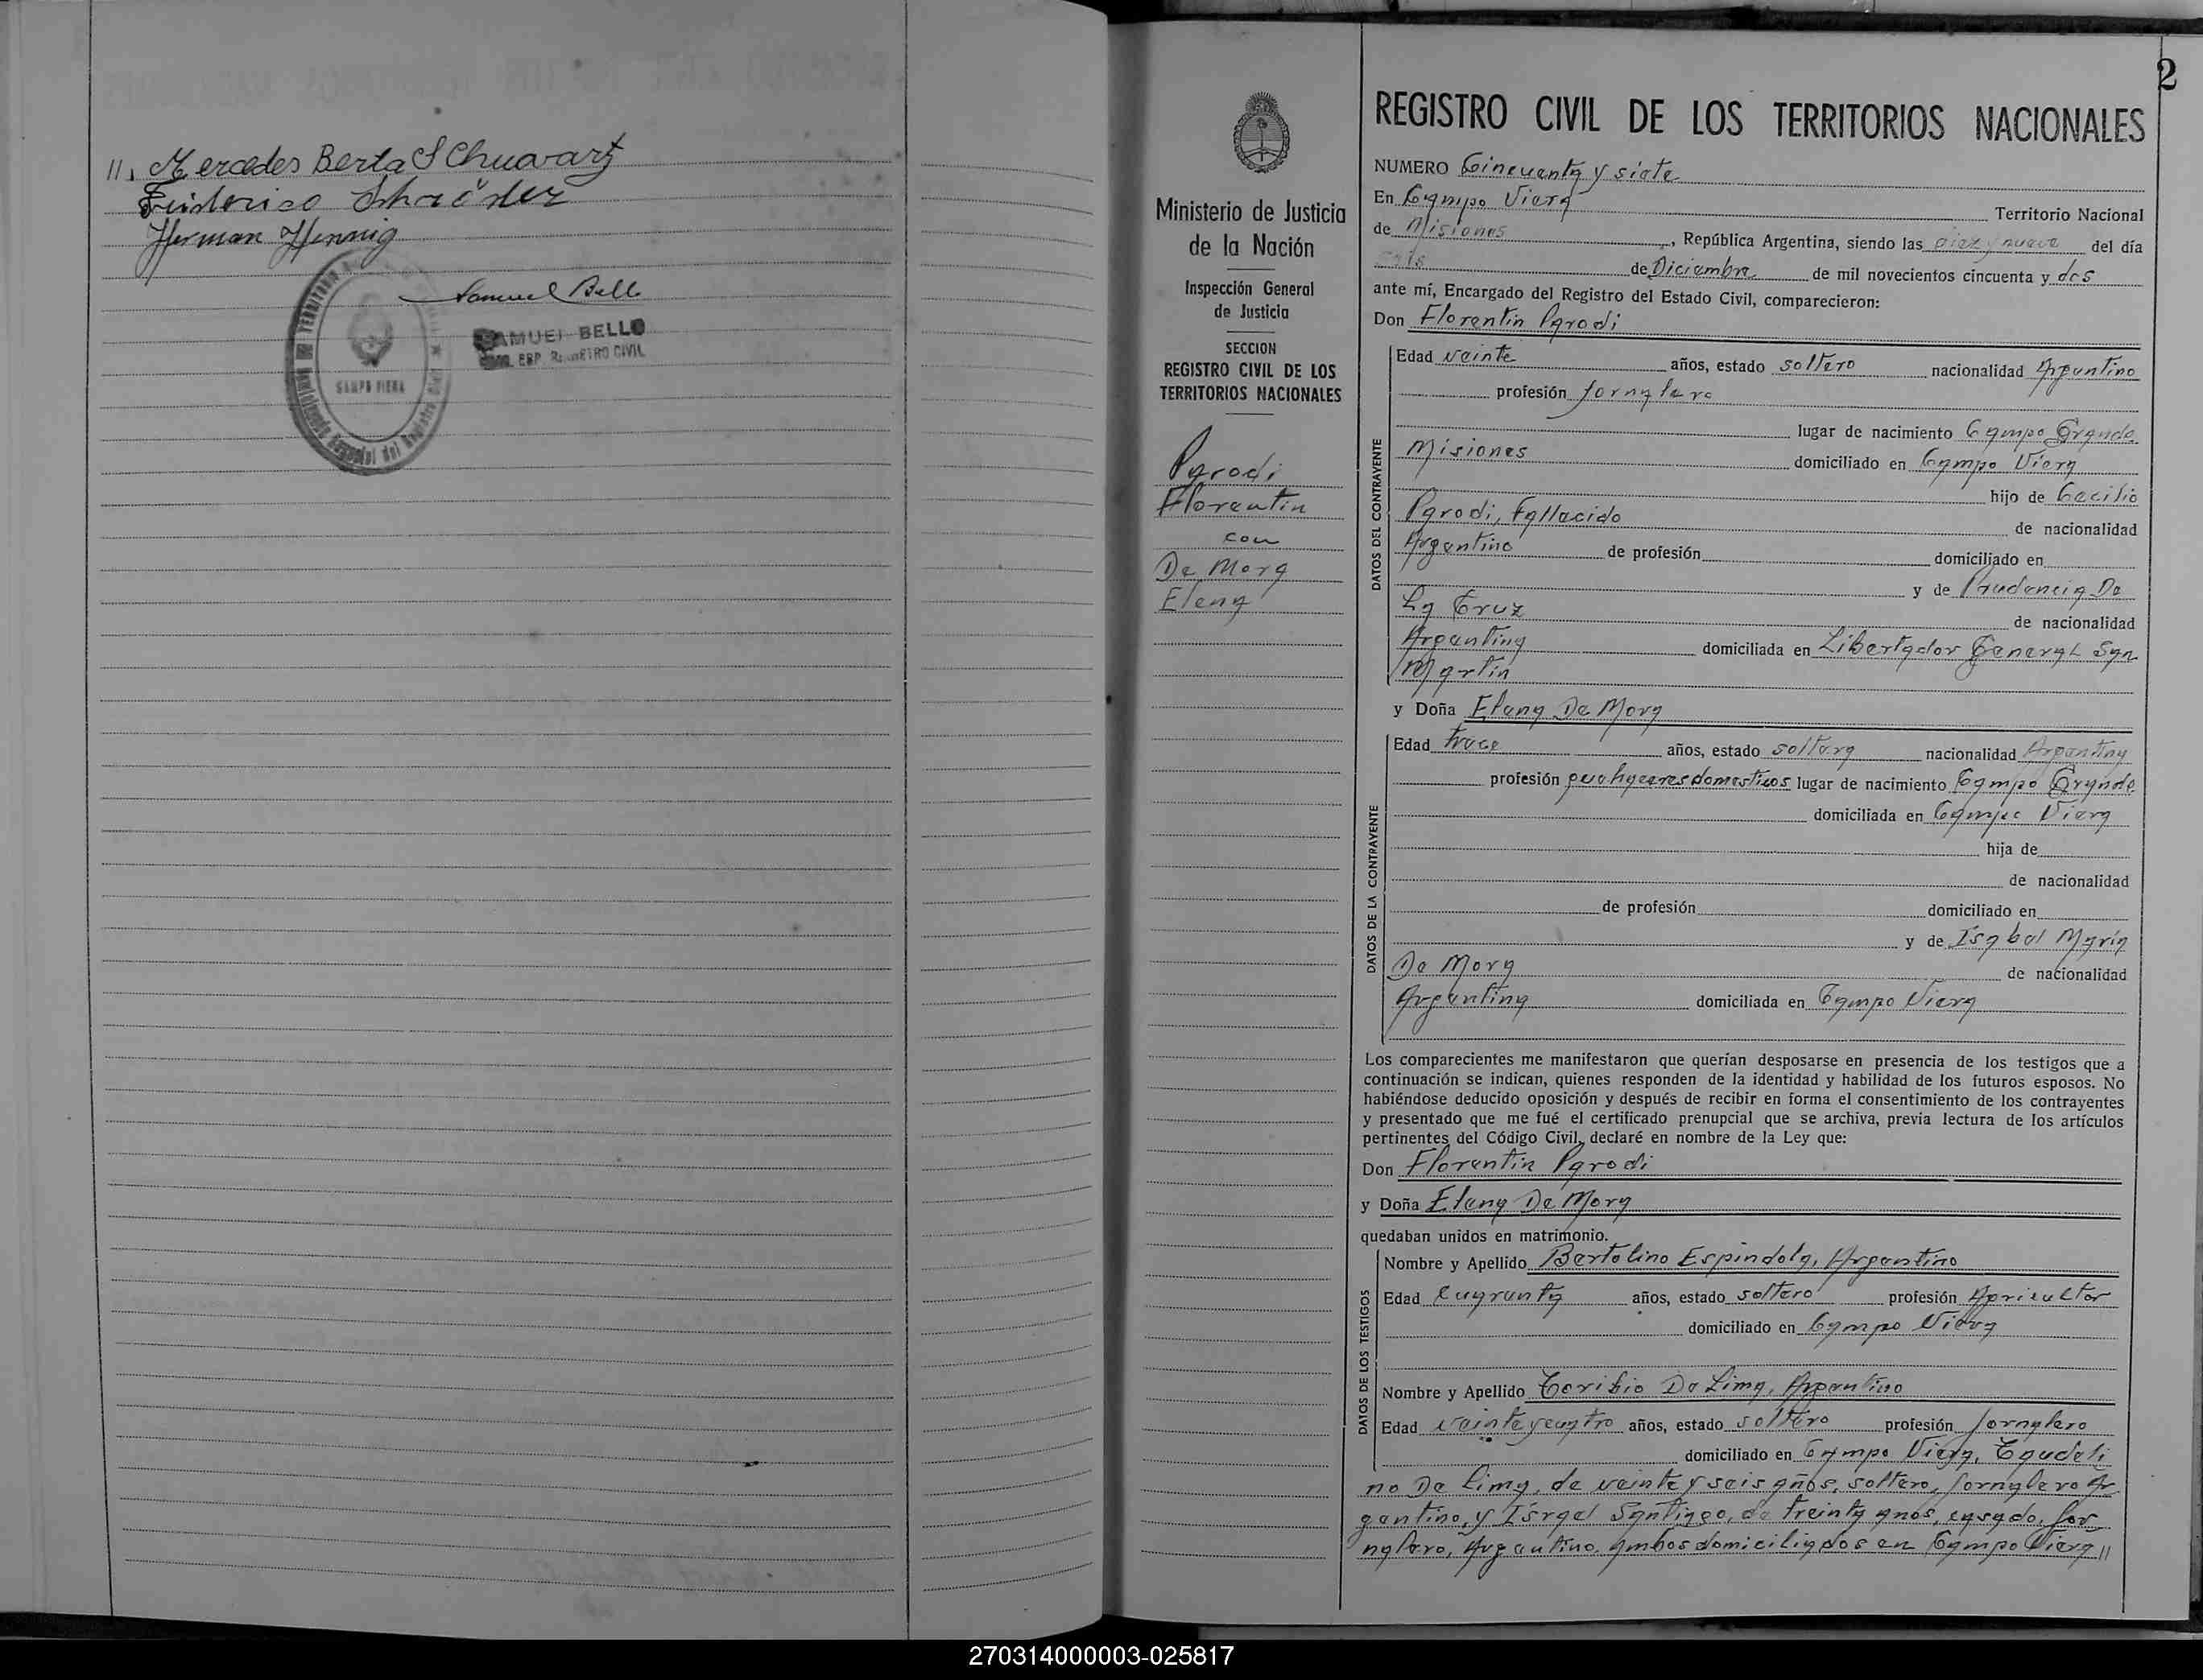 11, Mercedes Berta Schuvartz
Federico Schröder
Herman Hennig
Samuel Bello
SAMUEL BELLO
ESP. REGISTRO CIVIL
CAMPO VIERA
2
Ministerio de Justicia
de la Nación
Inspección General
de Justicia
SECCION
REGISTRO CIVIL DE LOS
TERRITORIOS NACIONALES
Parodi
Florentin
con
De Mora
Elena
REGISTRO CIVIL DE LOS TERRITORIOS NACIONALES
NUMERO Cincuenta y siete
En Campo Viera Territorio Nacional
de Misiones, República Argentina, siendo las diez y nueve del día
seis de Diciembre de mil novecientos cincuenta y dos
ante mí, Encargado del Registro del Estado Civil, comparecieron:
Don Florentin Parodi
DATOS DEL CONTRAYENTE
Edad veinte años, estado soltero nacionalidad Argentino
profesión Jornalero
lugar de nacimiento Campo Grande
Misiones domiciliado en Campo Viera
hijo de Cecilio
Parodi, Fallecido de nacionalidad
Argentino de profesión domiciliado en
y de Prudencia De
La Cruz de nacionalidad
Argentina domiciliada en Libertador General San
Martin
y Doña Elena De Mora
DATOS DE LA CONTRAYENTE
Edad trece años, estado soltera nacionalidad Argentina
profesión quehaceres domesticos lugar de nacimiento Campo Grande
domiciliada en Campo Viera
hija de
de nacionalidad
de profesión domiciliado en
y de Isabel Maria
De Mora de nacionalidad
Argentina domiciliada en Campo Viera
Los comparecientes me manifestaron que querían desposarse en presencia de los testigos que a
continuación se indican, quienes responden de la identidad y habilidad de los futuros esposos. No
habiéndose deducido oposición y después de recibir en forma el consentimiento de los contrayentes
y presentado que me fué el certificado prenupcial que se archiva, previa lectura de los artículos
pertinentes del Código Civil, declaré en nombre de la Ley que:
Don Florentin Parodi
y Doña Elena De Mora
quedaban unidos en matrimonio.
DATOS DE LOS TESTIGOS
Nombre y Apellido Bertolino Espindola, Argentino
Edad cuarenta años, estado soltero profesión Agricultor
domiciliado en Campo Viera
Nombre y Apellido Toribio De Lima, Argentino
Edad veinte y cuatro años, estado soltero profesión Jornalero
domiciliado en Campo Viera, Taudeli
no De Lima, de veinte y seis años, soltero, Jornalero Ar
gentino, y Israel Santiago, de treinta anos, casado, Jor
nalero, Argentino, ambos domiciliados en Campo Viera //
270314000003-025817